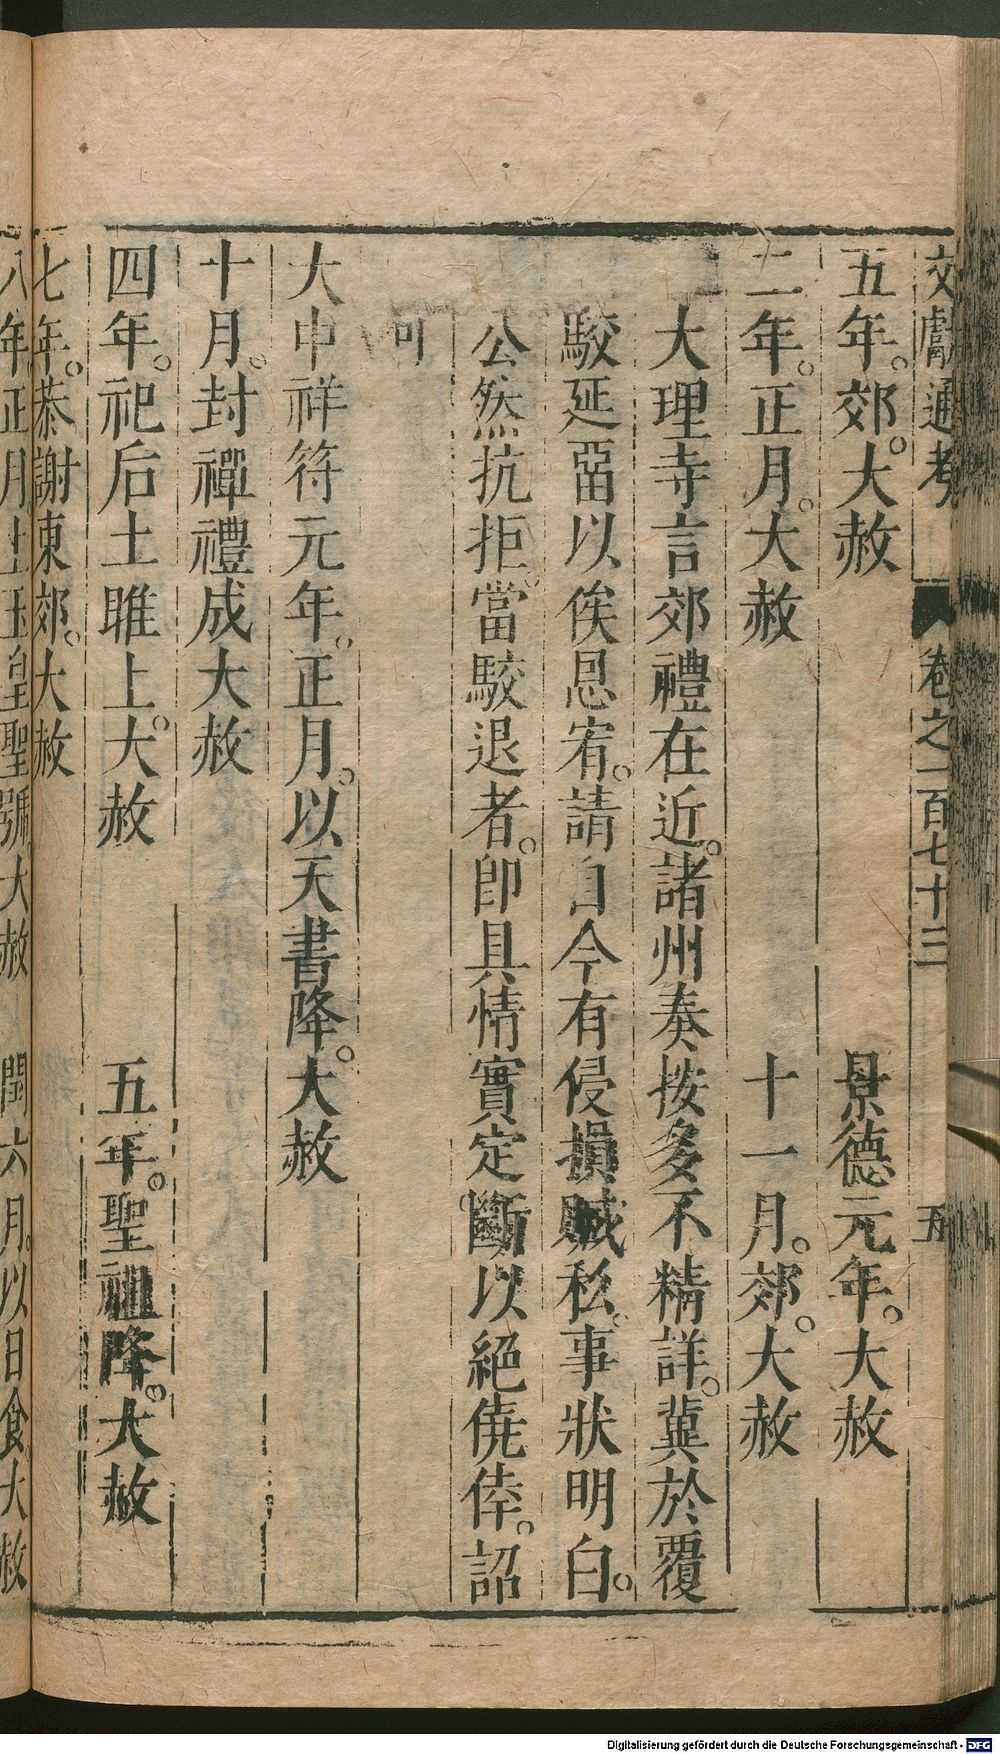 文獻通考 卷之一百七十三 五
五年。郊。大赦 景德元年。大赦
二年。正月。大赦 十一月。郊。大赦
大理寺言郊禮在近。諸州奏按多不精詳。冀於覆
駮延畱以俟恩宥。請自今有侵損贓私。事狀明白。
公然抗拒。當駮退者。卽具情實定斷。以絕僥倖。詔
可
大中祥符元年。正月。以天書降。大赦
十月。封禪禮成大赦
四年。祀后土雎上。大赦 五年。聖祖降。大赦
七年。恭謝東郊。大赦
八年正月上玉皇聖號。大赦 閏六月。以日食。大赦
Digitalisierung gefördert durch die Deutsche Forschungsgemeinschaft - DFG